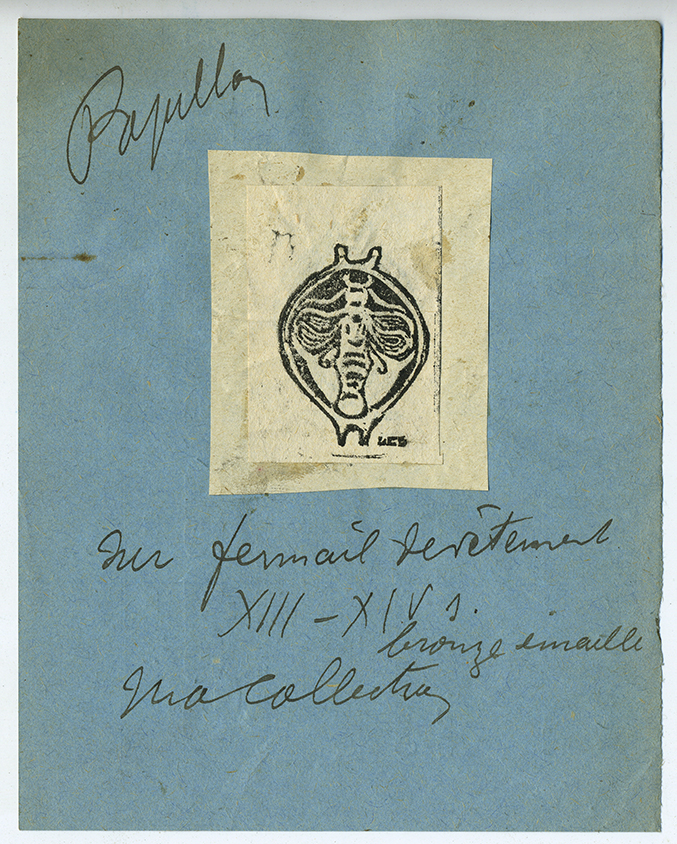 Papillon
LCS
sur fermail de vêtement
XIII - XIV s.
bronze émaillé
Ma Collection